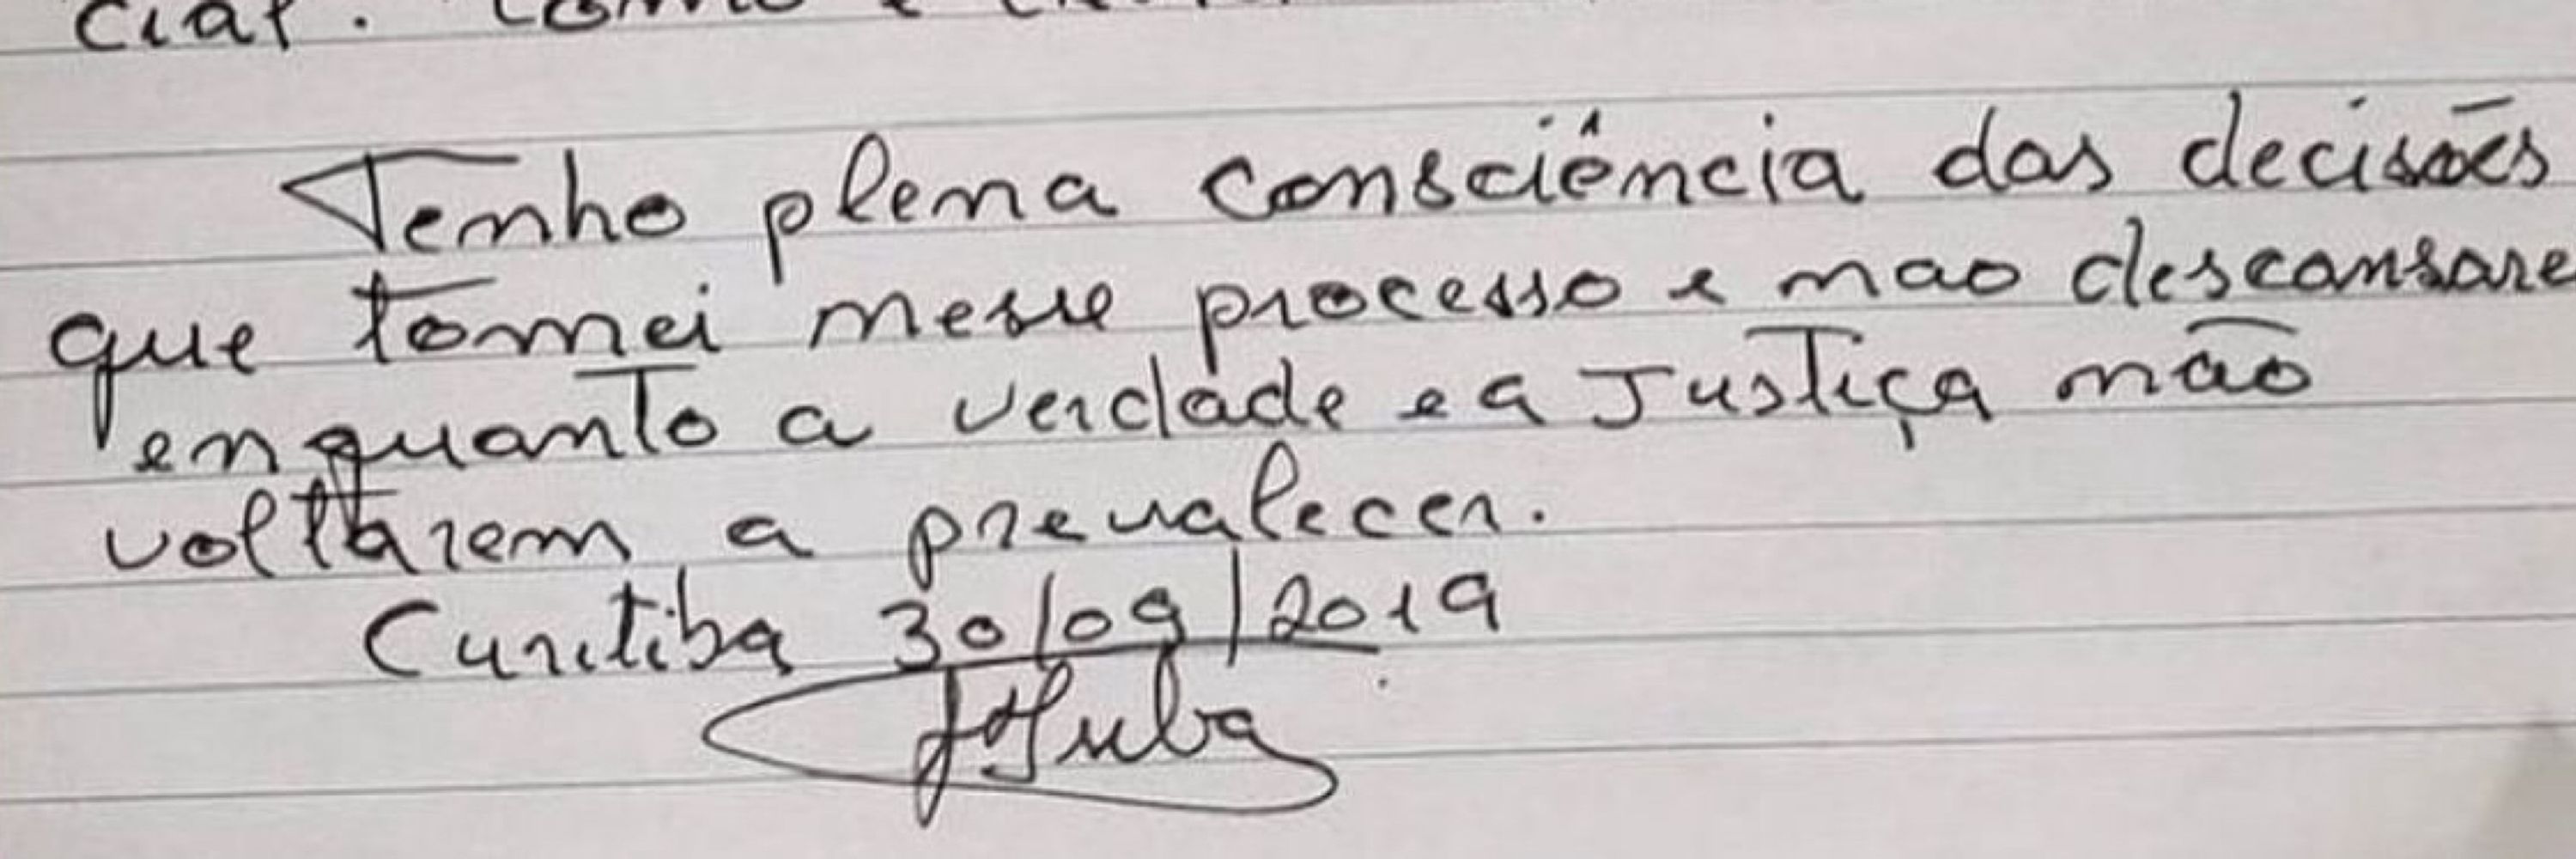 Tenho plena consciência das decisões
que tomei nesse processo e nao descansare
enquanto a verdade e a Justiça não
voltarem a prevalecer.
Curitiba 30/09/2019